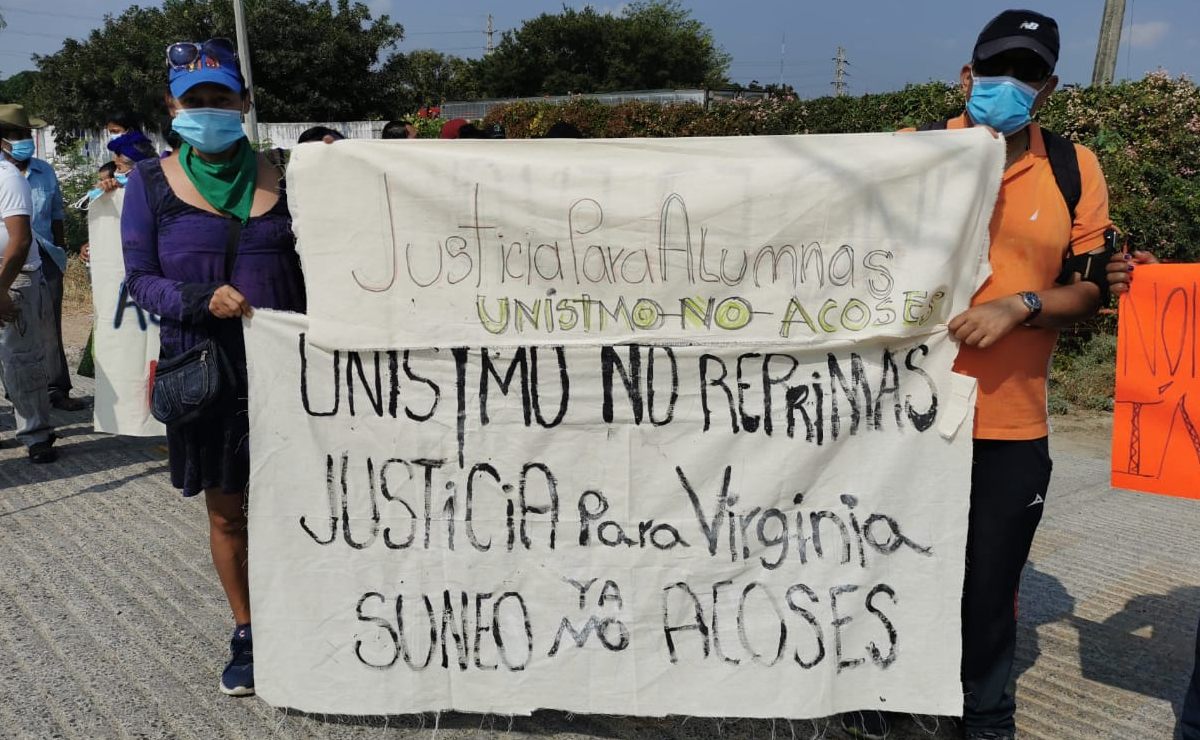 Justicia Para Alumnas
UNISTMO NO ACOSES
UNISTMO NO REPRIMAS
JUSTICIA Para Virginia
SUNEO YA NO ACOSES
NO